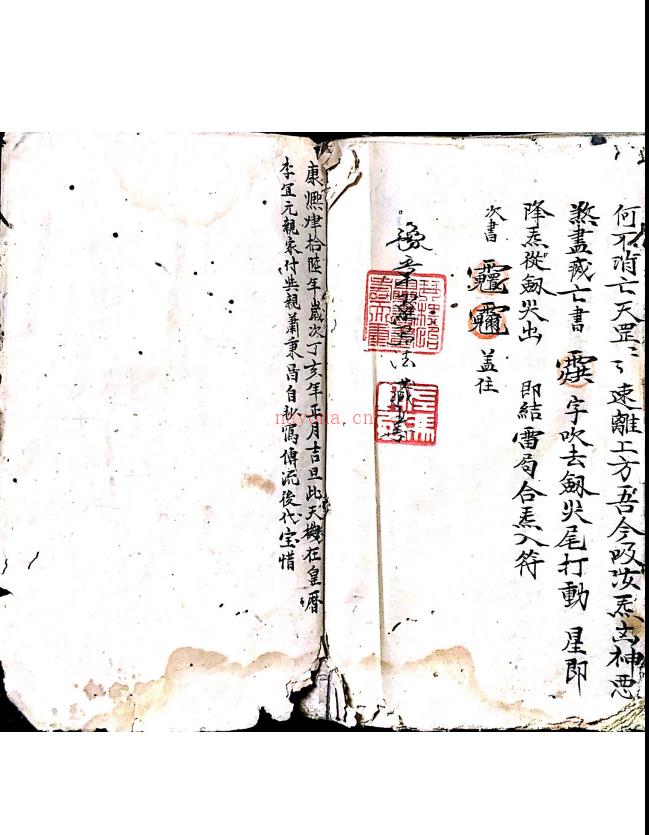 何不消亡天罡〻〻速離上方吾今吸汝炁凶神惡
煞盡藏亡書　字吹去劔尖尾打動　星即
降炁從劔尖出　即結雷局合炁入符
次書　蓋住
豫章　法藏
康熙肆拾陸年歲次丁亥年正月吉旦此天機在皇曆
李宜元親家付與親蕭秉昌自抄寫傳流後代宝惜